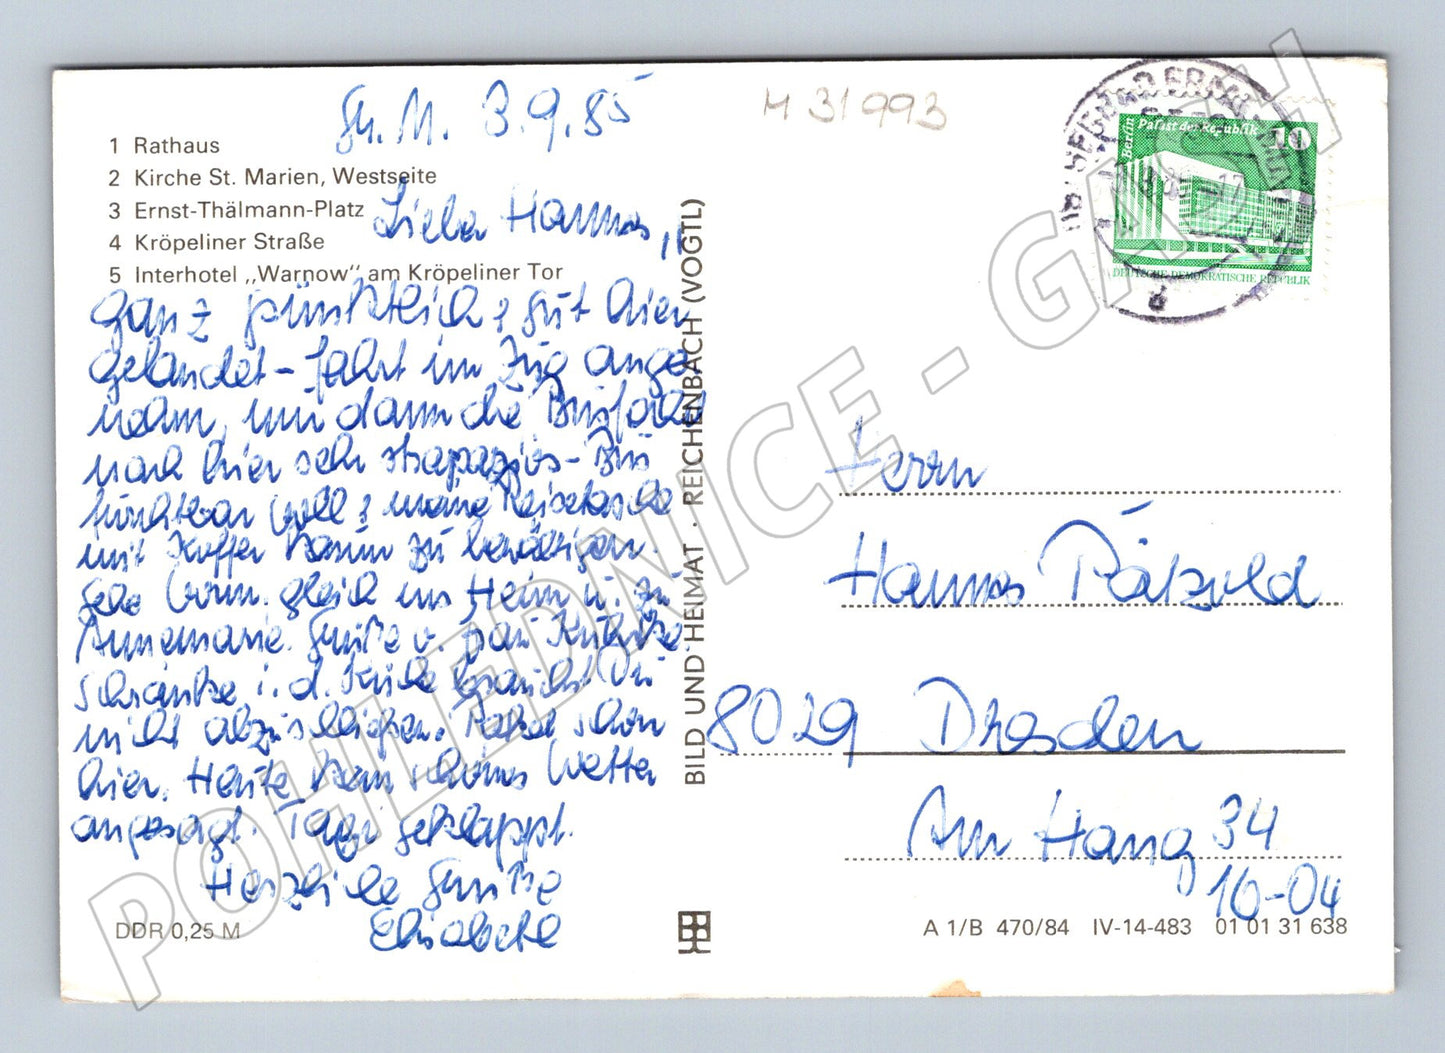 Gr. M. 3.9.85
M 31993
1 Rathaus
2 Kirche St. Marien, Westseite
3 Ernst-Thälmann-Platz
4 Kröpeliner Straße
5 Interhotel „Warnow“ am Kröpeliner Tor
Lieber Hannes,
ganz pünktlich & gut hier
gelandet – Fahrt im Zug ange
nehm, nur dann die Busfahrt
nach hier sehr strapaziös – Bus
furchtbar voll & meine Reisetasche
mit Koffer kaum zu bewältigen.
Gehe vorm. gleich ins Heim u. zu
Annemarie. Grüße v.
schränke i. d. Küche brauchst Du
nicht abzuschließen. Paket schon
hier. Heute kein schönes Wetter
angesagt. geklappt.
Herzliche Grüße
Elisabeth
BILD UND HEIMAT · REICHENBACH (VOGTL)
Berlin Palast der Republik 10
DEUTSCHE DEMOKRATISCHE REPUBLIK
Herrn
Hannes Pätzold
8029 Dresden
Am Hang 34
16-04
DDR 0,25 M
A 1/B 470/84 IV-14-483 01 01 31 638
POHLEDNICE - GASH